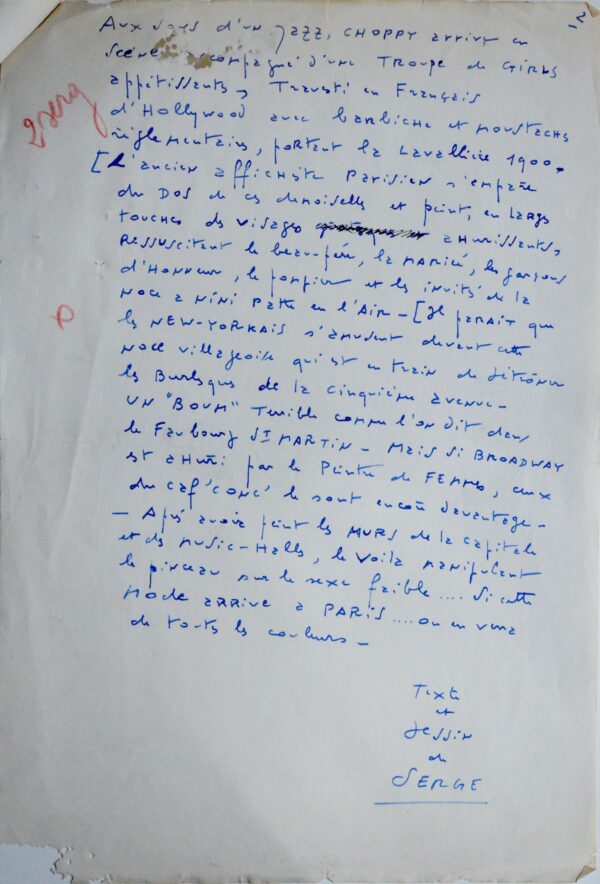 2
Aux sons d'un jazz, CHOPPY arrive en
scène accompagné d'une TROUPE de GIRLS
appétissants, Travesti en Français
d'Hollywood avec barbiche et moustache
réglementaire, portant la Lavallière 1900.
[L'ancien affichiste Parisien s'empare
du DOS de ces demoiselles et peint, en large
touches des visages ahurissants,
Ressuscitent le beau-père, la MARIÉE, les garçons
d'HONNEUR, le pompier et les invités de la
NOCE à NINI PATTE en l'AIR - [Il paraît que
les NEW-YORKAIS s'amusent devant cette
NOCE villageoise qui est en train de détrôner
les Burlesques de la cinquième avenue -
UN "BOUM" Terrible comme l'on dit dans
le Faubourg St MARTIN - MAIS SI BROADWAY
est ahuri par le Peintre de FEMMES, ceux
du caf'conc' le sont encore davantage -
- Après avoir peint les MURS de la capitale
et des music-Halls, le voilà manipulant
le pinceau sur le sexe faible .... Si cette
mode arrive à PARIS .... on en verra
de toutes les couleurs -
Texte
et
dessin
de
SERGE